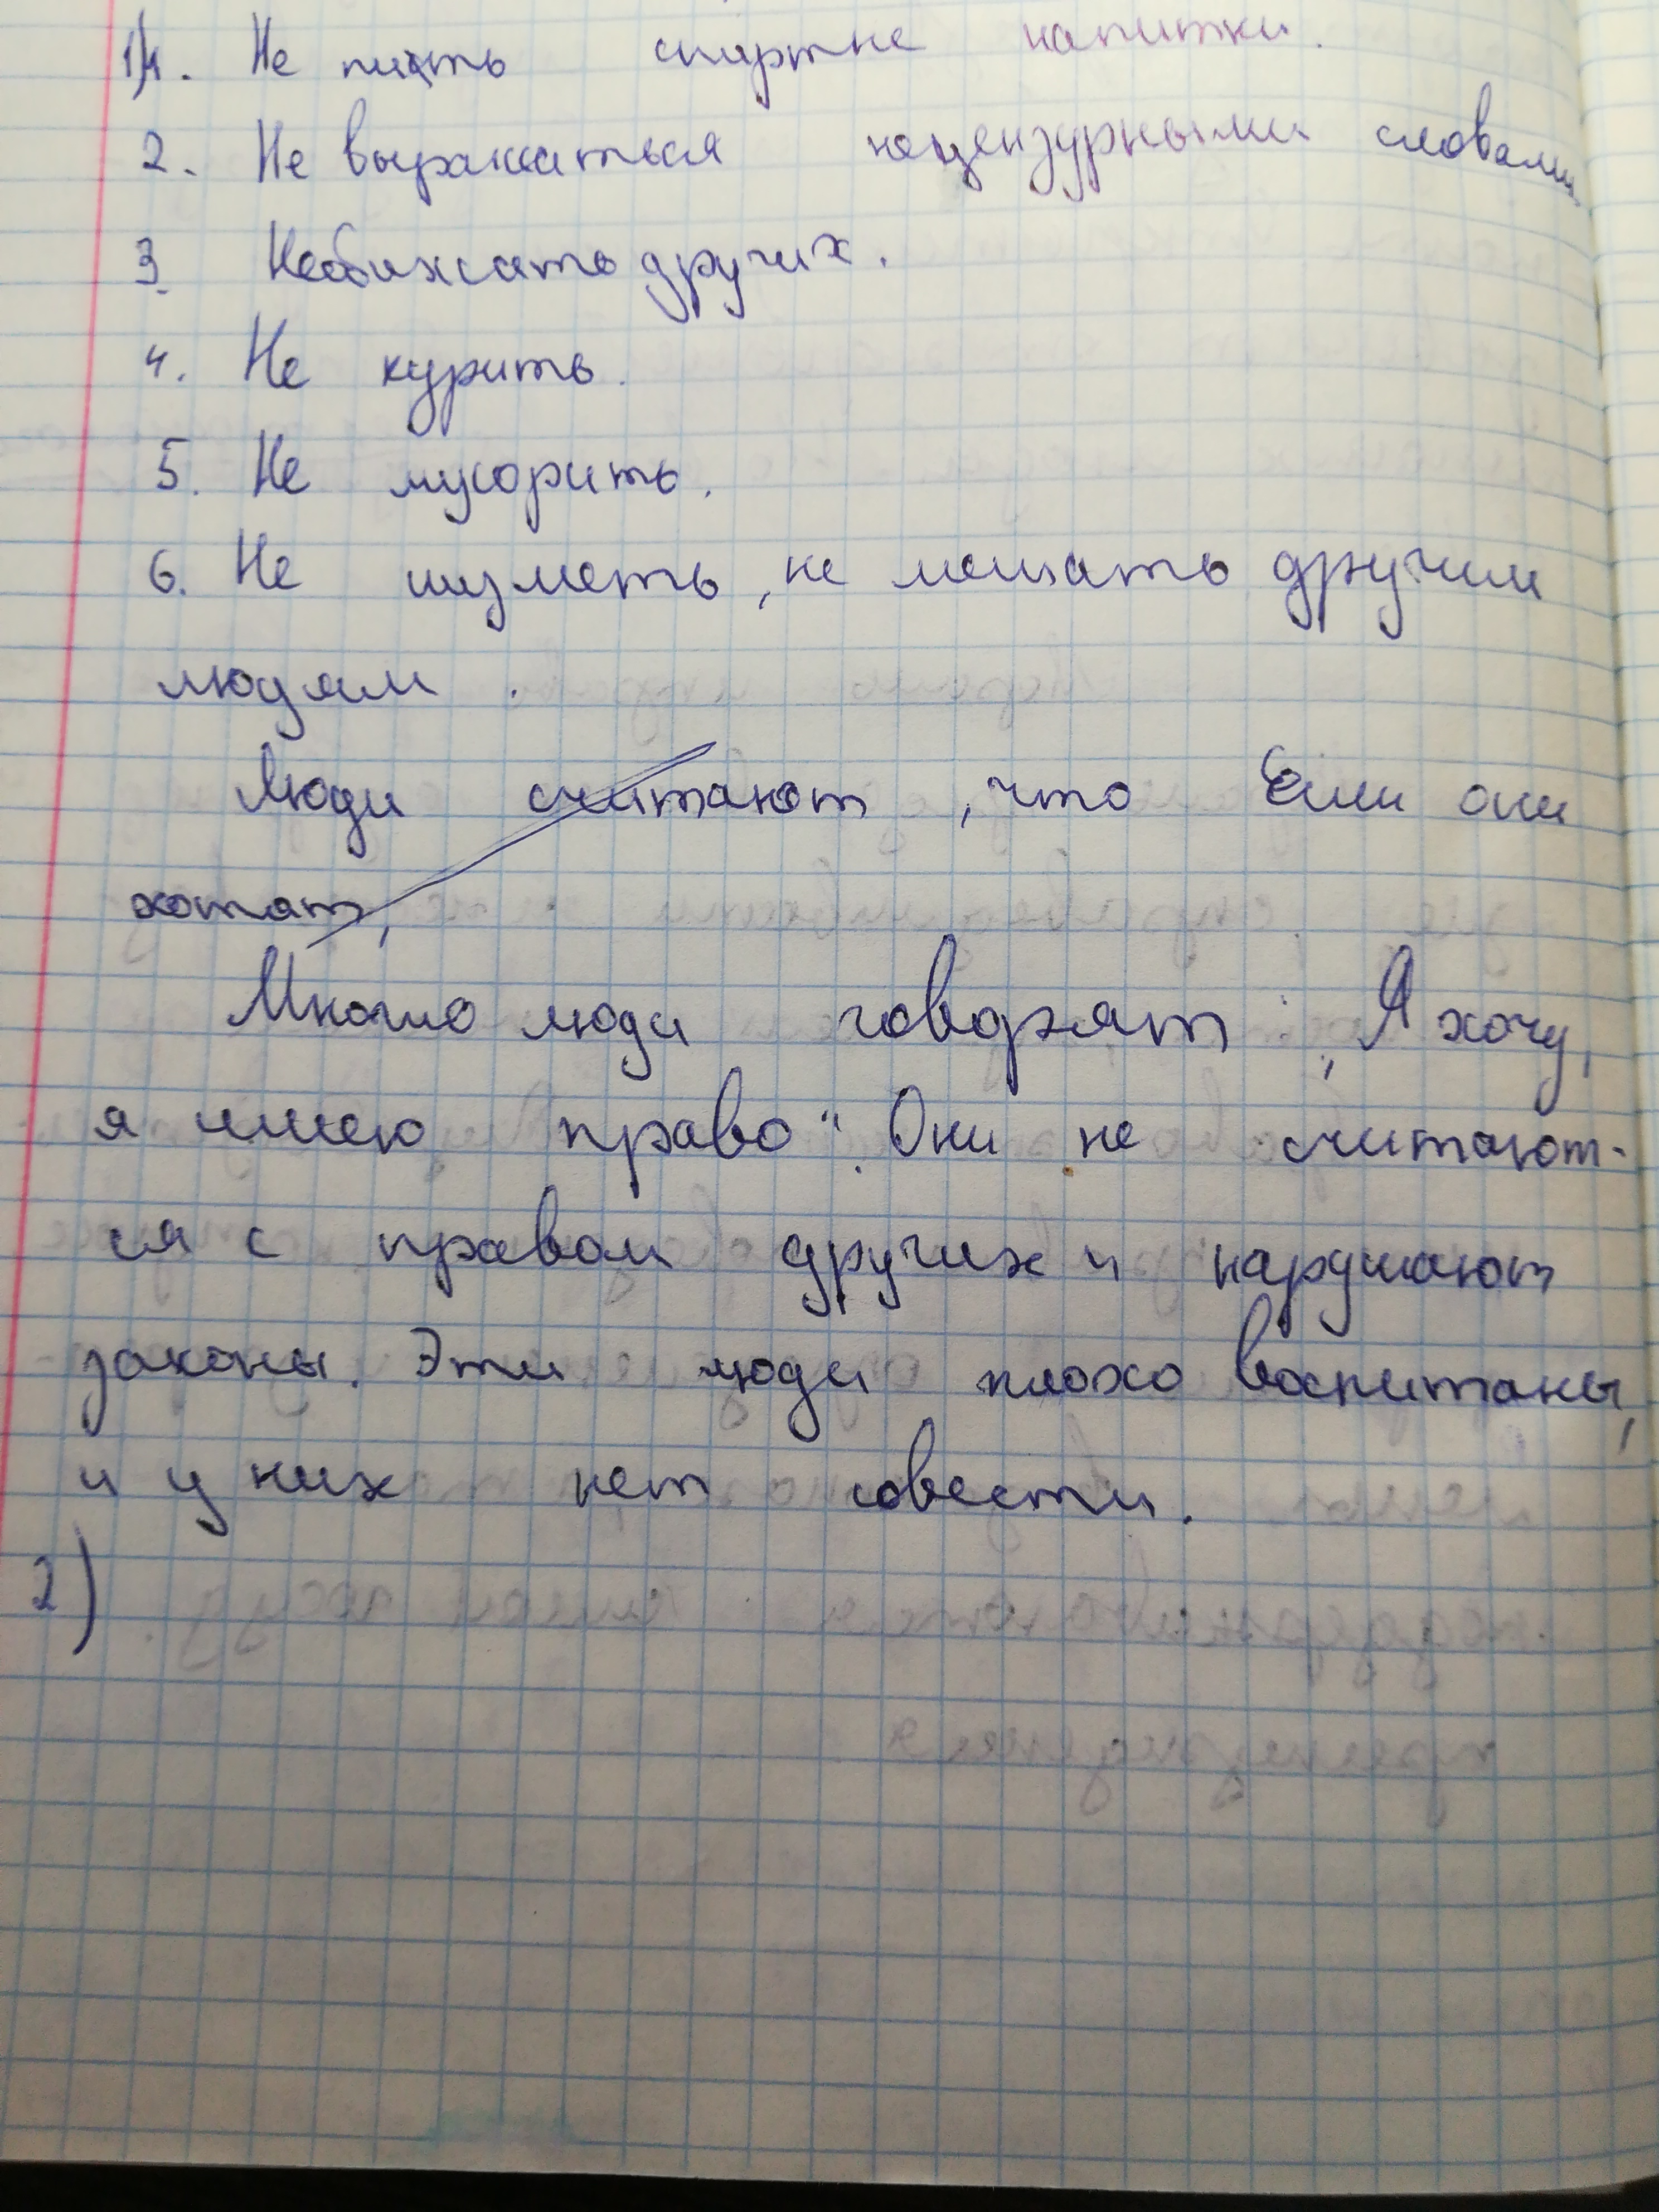 1)1. Не пить спиртне напитки.
2. Не выражаться нецензурными словами.
3. Необижать других.
4. Не курить.
5. Не мусорить.
6. Не шуметь, не мешать другим
людям.
Люди считают, что Если они
хотят,
Много люди говорят: „Я хочу,
я имею право“. Они не считают-
ся с правом других и нарушают
законы. Эти люди плохо воспитаны,
и у них нет совести.
2)